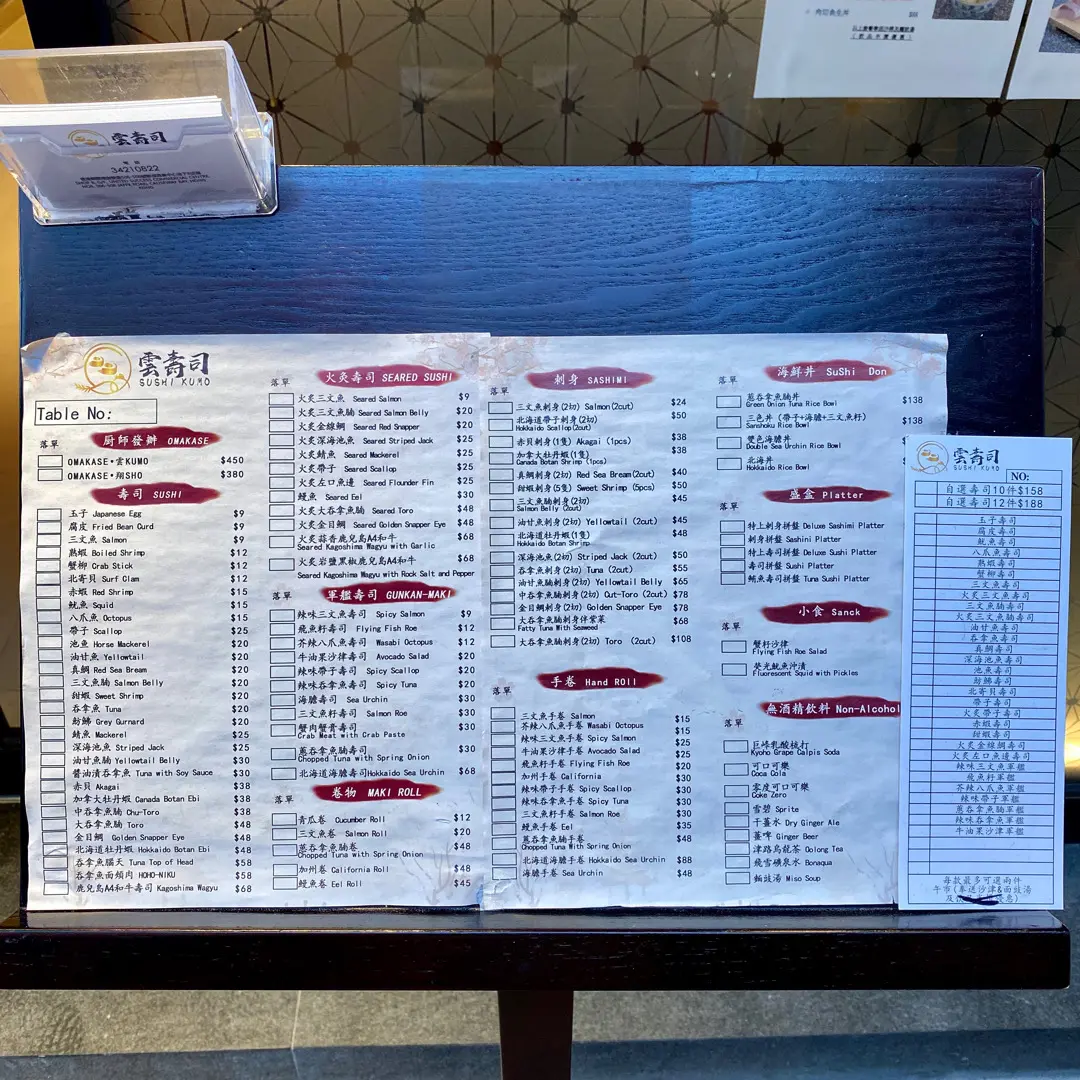 雲壽司
電話
34210822
肉切魚生丼 $88
雲壽司
SUSHI KUMO
Table No:
落單 廚師發辦 OMAKASE
OMAKASE·雲KUMO $450
OMAKASE·翔SHO $380
壽司 SUSHI
玉子 Japanese Egg $9
腐皮 Fried Bean Curd $9
三文魚 Salmon $9
熟蝦 Boiled Shrimp $12
蟹柳 Crab Stick $12
北寄貝 Surf Clam $12
赤蝦 Red Shrimp $15
魷魚 Squid $15
八爪魚 Octopus $15
帶子 Scallop $25
池魚 Horse Mackerel $20
油甘魚 Yellowtail $20
真鯛 Red Sea Bream $20
三文魚腩 Salmon Belly $20
甜蝦 Sweet Shrimp $20
吞拿魚 Tuna $20
魴鮄 Grey Gurnard $20
鯖魚 Mackerel $25
深海池魚 Striped Jack $25
油甘魚腩 Yellowtail Belly $30
醬油漬吞拿魚 Tuna with Soy Sauce $30
赤貝 Akagai $38
加拿大牡丹蝦 Canada Botan Ebi $38
中吞拿魚腩 Chu-Toro $38
大吞拿魚腩 Toro $48
金目鯛 Golden Snapper Eye $48
北海道牡丹蝦 Hokkaido Botan Ebi $48
吞拿魚腦天 Tuna Top of Head $58
吞拿魚面頰肉 HOHO-NIKU $58
鹿兒島A4和牛壽司 Kagoshima Wagyu $68
落單 火炙壽司 SEARED SUSHI
火炙三文魚 Seared Salmon $9
火炙三文魚腩 Seared Salmon Belly $20
火炙金線鯛 Seared Red Snapper $20
火炙深海池魚 Seared Striped Jack $25
火炙鯖魚 Seared Mackerel $25
火炙帶子 Seared Scallop $25
火炙左口魚邊 Seared Flounder Fin $25
鰻魚 Seared Eel $30
火炙大吞拿魚腩 Seared Toro $48
火炙金目鯛 Seared Golden Snapper Eye $48
火炙蒜香鹿兒島A4和牛 $68
Seared Kagoshima Wagyu with Garlic
火炙岩鹽黑椒鹿兒島A4和牛 $68
Seared Kagoshima Wagyu with Rock Salt and Pepper
落單 軍艦壽司 GUNKAN-MAKI
辣味三文魚壽司 Spicy Salmon $9
飛魚籽壽司 Flying Fish Roe $12
芥辣八爪魚壽司 Wasabi Octopus $12
牛油果沙律壽司 Avocado Salad $20
辣味帶子壽司 Spicy Scallop $20
辣味吞拿魚壽司 Spicy Tuna $20
海膽壽司 Sea Urchin $30
三文魚籽壽司 Salmon Roe $30
蟹肉蟹膏壽司 $30
Crab Meat with Crab Paste
蔥吞拿魚腩壽司 $30
Chopped Tuna with Spring Onion
北海道海膽壽司Hokkaido Sea Urchin $68
落單 卷物 MAKI ROLL
青瓜卷 Cucumber Roll $12
三文魚卷 Salmon Roll $20
蔥吞拿魚腩卷 $48
Chopped Tuna with Spring Onion
加州卷 California Roll $48
鰻魚卷 Eel Roll $45
落單 刺身 SASHIMI
三文魚刺身(2切) Salmon(2cut) $24
北海道帶子刺身(2切) $50
Hokkaido Scallop(2cut)
赤貝刺身(1隻) Akagai (1pcs) $38
加拿大牡丹蝦(1隻) $38
Canada Botan Shrimp (1pcs)
真鯛刺身(2切) Red Sea Bream(2cut) $40
甜蝦刺身(5隻) Sweet Shrimp (5pcs) $50
三文魚腩刺身(2切) $45
Salmon Belly (2cut)
油甘魚刺身(2切) Yellowtail (2cut) $45
北海道牡丹蝦(1隻) $48
Hokkaido Botan Shrimp
深海池魚(2切) Striped Jack (2cut) $50
吞拿魚刺身(2切) Tuna (2cut) $55
油甘魚腩刺身(2切) Yellowtail Belly $65
中吞拿魚腩刺身(2切) Cut-Toro (2cut) $78
金目鯛刺身(2切) Golden Snapper Eye $78
大吞拿魚腩刺身伴紫菜 $68
Fatty Tuna With Seaweed
大吞拿魚腩刺身(2切) Toro (2cut) $108
落單 手卷 Hand ROll
三文魚手卷 Salmon $15
芥辣八爪魚手卷 Wasabi Octopus $15
辣味三文魚手卷 Spicy Salmon $25
牛油果沙律手卷 Avocado Salad $25
飛魚籽手卷 Flying Fish Roe $20
加州手卷 California $30
辣味帶子手卷 Spicy Scallop $30
辣味吞拿魚手卷 Spicy Tuna $30
三文魚籽手卷 Salmon Roe $30
鰻魚手卷 Eel $35
蔥吞拿魚腩手卷 $48
Chopped Tuna With Spring Onion
北海道海膽手卷 Hokkaido Sea Urchin $88
海膽手卷 Sea Urchin $48
落單 海鮮丼 SuShi Don
蔥吞拿魚腩丼 $138
Green Onion Tuna Rice Bowl
三色丼 (帶子+海膽+三文魚籽) $138
Sanshoku Rice Bowl
雙色海膽丼
Double Sea Urchin Rice Bowl
北海丼
Hokkaido Rice Bowl
落單 盛盒 Platter
特上刺身拼盤 Deluxe Sashimi Platter
刺身拼盤 Sashini Platter
特上壽司拼盤 Deluxe Sushi Platter
壽司拼盤 Sushi Platter
鮪魚壽司拼盤 Tuna Sushi Platter
落單 小食 Sanck
蟹籽沙律
Flying Fish Roe Salad
熒光魷魚沖漬
Fluorescent Squid with Pickles
落單 無酒精飲料 Non-Alcohol
巨峰乳酸梳打
Kyoho Grape Calpis Soda
可口可樂
Coca Cola
零度可口可樂
Coke Zero
雪碧 Sprite
干薑水 Dry Ginger Ale
薑啤 Ginger Beer
津路烏龍茶 Oolong Tea
飛雪礦泉水 Bonaqua
麵豉湯 Miso Soup
雲壽司
SUSHI KUMO
NO:
自選壽司10件$158
自選壽司12件$188
玉子壽司
腐皮壽司
魷魚壽司
八爪魚壽司
熟蝦壽司
蟹柳壽司
三文魚壽司
火炙三文魚壽司
三文魚腩壽司
火炙三文魚腩壽司
油甘魚壽司
吞拿魚壽司
真鯛壽司
深海池魚壽司
池魚壽司
魴鮄壽司
北寄貝壽司
帶子壽司
火炙帶子壽司
赤蝦壽司
甜蝦壽司
火炙金線鯛壽司
火炙左口魚邊壽司
辣味三文魚軍艦
飛魚籽軍艦
芥辣八爪魚軍艦
辣味帶子軍艦
蔥吞拿魚腩軍艦
辣味吞拿魚軍艦
牛油果沙津軍艦
每款最多可選兩件
午市(奉送沙津&面豉湯